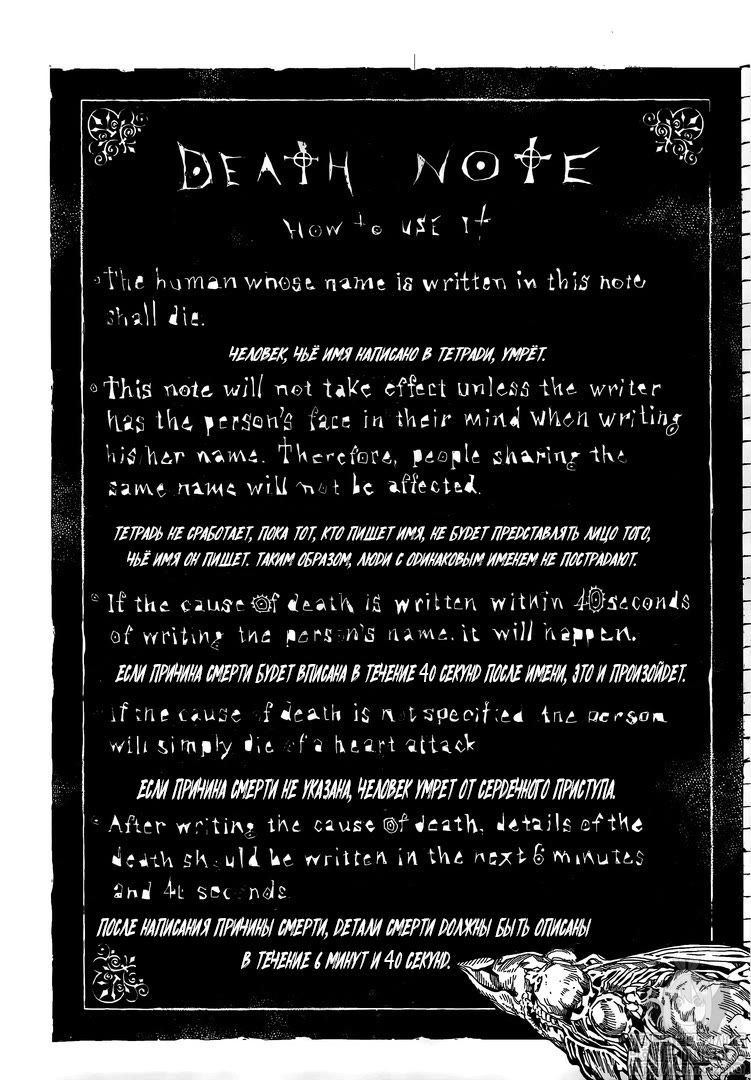 DEATH NOTE
How to use it
The human whose name is written in this note
shall die.
ЧЕЛОВЕК, ЧЬЁ ИМЯ НАПИСАНО В ТЕТРАДИ, УМРЁТ.
This note will not take effect unless the writer
has the person's face in their mind when writing
his her name. Therefore, people sharing the
same name will not be affected.
ТЕТРАДЬ НЕ СРАБОТАЕТ, ПОКА ТОТ, КТО ПИШЕТ ИМЯ, НЕ БУДЕТ ПРЕДСТАВЛЯТЬ ЛИЦО ТОГО,
ЧЬЁ ИМЯ ОН ПИШЕТ. ТАКИМ ОБРАЗОМ, ЛЮДИ С ОДИНАКОВЫМ ИМЕНЕМ НЕ ПОСТРАДАЮТ.
If the cause of death is written within 40 seconds
of writing the person's name, it will happen.
ЕСЛИ ПРИЧИНА СМЕРТИ БУДЕТ ВПИСАНА В ТЕЧЕНИЕ 40 СЕКУНД ПОСЛЕ ИМЕНИ, ЭТО И ПРОИЗОЙДЕТ.
If the cause of death is not specified the person
will simply die of a heart attack
ЕСЛИ ПРИЧИНА СМЕРТИ НЕ УКАЗАНА, ЧЕЛОВЕК УМРЕТ ОТ СЕРДЕЧНОГО ПРИСТУПА.
After writing the cause of death, details of the
death should be written in the next 6 minutes
and 40 seconds.
ПОСЛЕ НАПИСАНИЯ ПРИЧИНЫ СМЕРТИ, ДЕТАЛИ СМЕРТИ ДОЛЖНЫ БЫТЬ ОПИСАНЫ
В ТЕЧЕНИЕ 6 МИНУТ И 40 СЕКУНД.